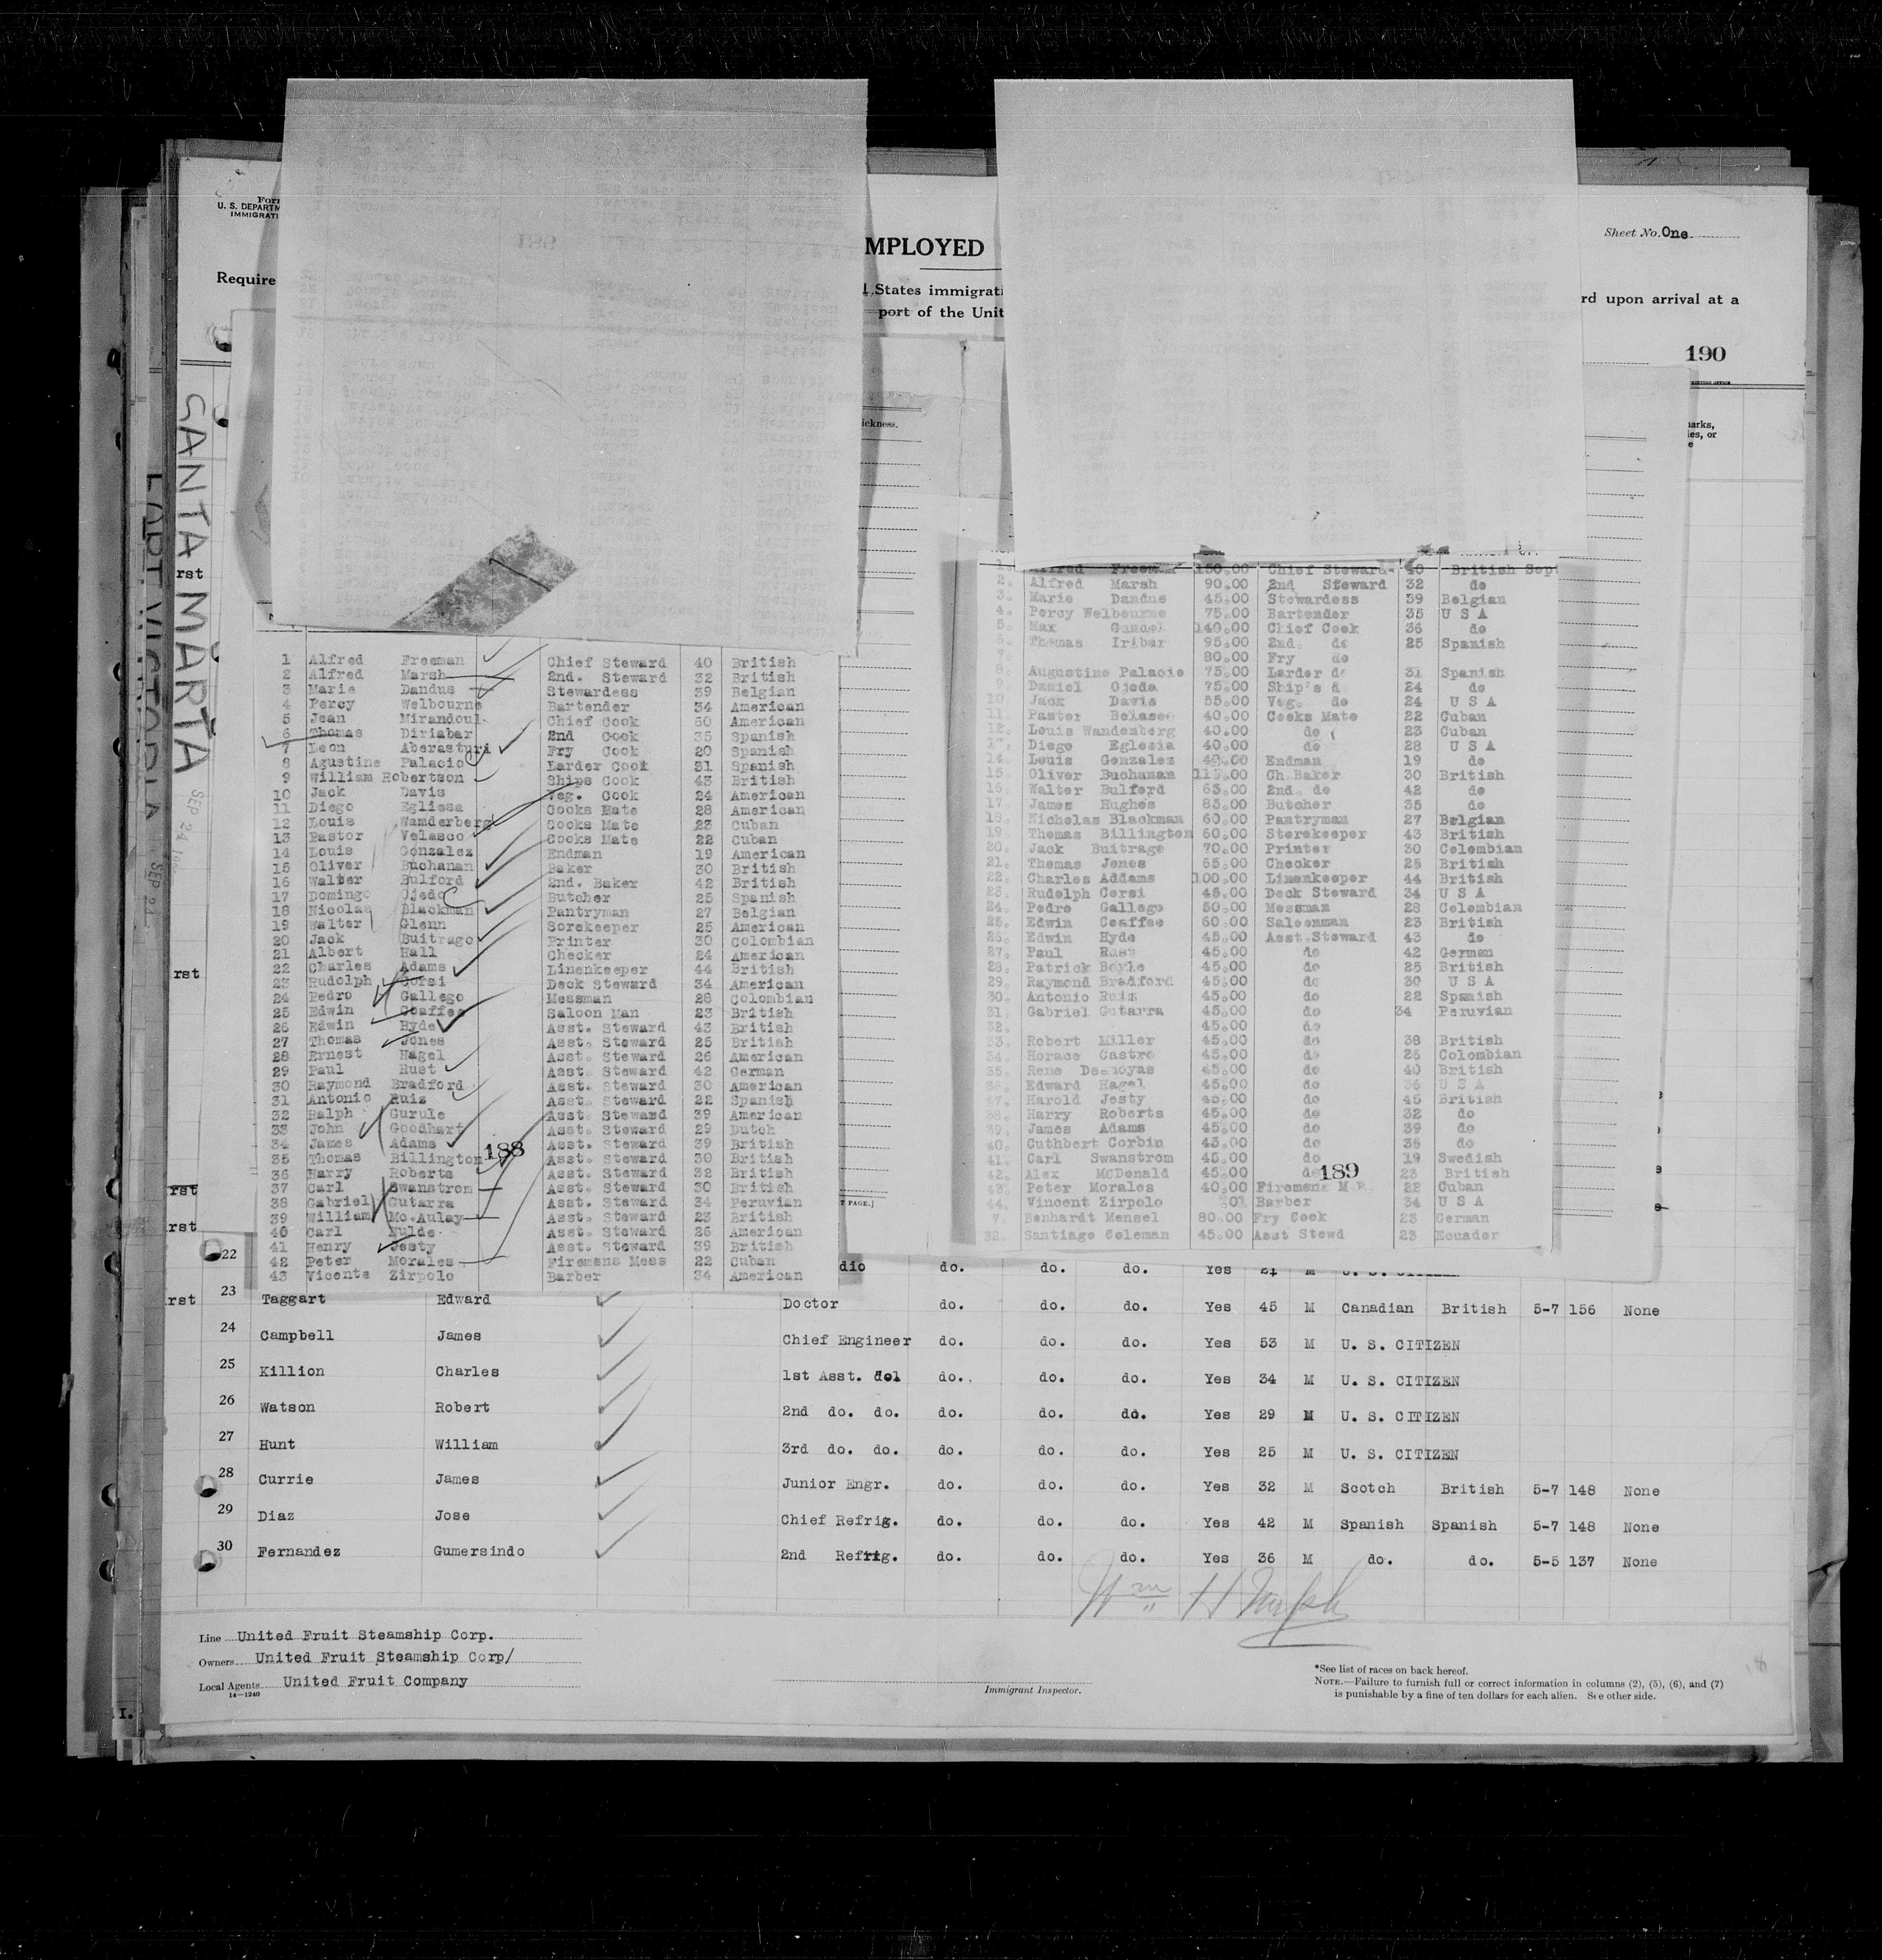 Form
U. S. DEPARTM
IMMIGRATI
MPLOYED
Sheet No. One
Require
States immigrati
rd upon arrival at a
port of the Unit
190
ickness.
arks,
ies, or
e
SANTA MARTA
SEP 24
rst
rst
rst
rst
rst
1 Alfred Freeman Chief Steward 40 British
2 Alfred Marsh 2nd. Steward 32 British
3 Marie Dandus Stewardess 39 Belgian
4 Percy Welbourne Bartender 34 American
5 Jean Mirandoul Chief Cook 60 American
6 Thomas Diriabar 2nd Cook 35 Spanish
7 Leon Aberasturi Fry Cook 20 Spanish
8 Agustine Palacio Larder Cook 31 Spanish
9 William Robertson Ships Cook 43 British
10 Jack Davis Veg. Cook 24 American
11 Diego Egliesa Cooks Mate 28 American
12 Louis Wamderberg Cooks Mate 23 Cuban
13 Pastor Velasco Cooks Mate 22 Cuban
14 Louis Gonzalez Endman 19 American
15 Oliver Buchanan Baker 30 British
16 Walter Bulford 2nd. Baker 42 British
17 Domingo Ojeda Butcher 25 Spanish
18 Nicolas Blackman Pantryman 27 Belgian
19 Walter Glenn Sorekeeper 25 American
20 Jack Buitrago Printer 30 Colombian
21 Albert Hall Checker 24 American
22 Charles Adams Linenkeeper 44 British
23 Rudolph Corsi Deck Steward 34 American
24 Pedro Gallego Messman 28 Colombian
25 Edwin Coaffee Saloon Man 23 British
26 Edwin Hyde Asst. Steward 43 British
27 Thomas Jones Asst. Steward 25 British
28 Ernest Hagel Asst. Steward 26 American
29 Paul Rust Asst. Steward 42 German
30 Raymond Bradford Asst. Steward 30 American
31 Antonio Ruiz Asst. Steward 22 Spanish
32 Ralph Gurule Asst. Steward 39 American
33 John Goodhart Asst. Steward 29 Dutch
34 James Adams Asst. Steward 39 British
35 Thomas Billington 188 Asst. Steward 30 British
36 Harry Roberts Asst. Steward 32 British
37 Carl Swanstrom Asst. Steward 30 British
38 Gabriel Gutarra Asst. Steward 34 Peruvian
39 William Mc.Aulay Asst. Steward 23 British
40 Carl Nulde Asst. Steward 26 American
41 Henry Jesty Asst. Steward 39 British
42 Peter Morales Firemans Mess 22 Cuban
43 Vicente Zirpolo Barber 34 American
1. Alfred Freeman 150.00 Chief Steward 40 British Sep
2. Alfred Marsh 90.00 2nd Steward 32 do
3. Marie Dandue 45.00 Stewardess 39 Belgian
4. Percy Welbourne 75.00 Bartender 35 U S A
5. Max Gundel 140.00 Chief Cook 36 do
6. Thomas Iribar 95.00 2nd. do 25 Spanish
7. 80.00 Fry do
8. Augustine Palacio 75.00 Larder do 31 Spanish
9. Daniel Ojeda 75.00 Ship's d 24 do
10. Jack Davis 55.00 Veg. do 24 U S A
11. Paster Belasco 40.00 Cooks Mate 22 Cuban
12. Louis Wandenberg 40.00 do 23 Cuban
Diego Eglesia 40.00 do 28 U S A
14. Louis Gonzalez 40.00 Endman 19 do
15. Oliver Buchanan 115.00 Ch.Baker 30 British
16. Walter Bulford 65.00 2nd. do 42 do
17. James Hughes 85.00 Butcher 35 do
18. Nicholas Blackman 60.00 Pantryman 27 Belgian
19. Thomas Billington 60.00 Storekeeper 43 British
20. Jack Buitrago 70.00 Printer 30 Colombian
21. Thomas Jones 65.00 Checker 25 British
22. Charles Addams 100.00 Linenkeeper 44 British
23. Rudolph Corsi 45.00 Deck Steward 34 U S A
24. Pedro Gallego 50.00 Messman 28 Colombian
25. Edwin Coaffee 60.00 Saloonman 23 British
26. Edwin Hyde 45.00 Asst.Steward 43 do
27. Paul Russ 45.00 do 42 German
28. Patrick Boyle 45.00 do 25 British
29. Raymond Bradford 45.00 do 30 U S A
30. Antonio Ruiz 45.00 do 22 Spanish
31. Gabriel Gutarra 45.00 do 34 Peruvian
32. 45.00 do
33. Robert Miller 45.00 do 38 British
34. Horace Castro 45.00 do 25 Colombian
35. Rene Desnoyas 45.00 do 40 British
36. Edward Hagel 45.00 do 36 U S A
37. Harold Jesty 45.00 do 45 British
38. Harry Roberts 45.00 do 32 do
39. James Adams 45.00 do 39 do
40. Cuthbert Corbin 45.00 do 36 do
41. Carl Swanstrom 45.00 do 19 Swedish
42. Alex McDonald 45.00 do 189 23 British
43. Peter Morales 40.00 Firemens M.R. 22 Cuban
44. Vincent Zirpolo 301 Barber 34 U S A
7. Benhardt Mensel 80.00 Fry Cook 23 German
32. Santiago Coleman 45.00 Asst Stewd 23 Ecuador
T PAGE.]
22 dio do. do. do. Yes 21 M U. S. CITIZEN
23 Taggart Edward Doctor do. do. do. Yes 45 M Canadian British 5-7 156 None
24 Campbell James Chief Engineer do. do. do. Yes 53 M U. S. CITIZEN
25 Killion Charles 1st Asst. do. do. do. Yes 34 M U. S. CITIZEN
26 Watson Robert 2nd do. do. do. do. do. Yes 29 M U. S. CITIZEN
27 Hunt William 3rd do. do. do. do. do. Yes 25 M U. S. CITIZEN
28 Currie James Junior Engr. do. do. do. Yes 32 M Scotch British 5-7 148 None
29 Diaz Jose Chief Refrig. do. do. do. Yes 42 M Spanish Spanish 5-7 148 None
30 Fernandez Gumersindo 2nd Refrig. do. do. do. Yes 36 M do. do. 5-5 137 None
Line United Fruit Steamship Corp.
Owners United Fruit Steamship Corp/
Local Agents United Fruit Company
14—1240
Immigrant Inspector.
*See list of races on back hereof.
NOTE.—Failure to furnish full or correct information in columns (2), (5), (6), and (7)
is punishable by a fine of ten dollars for each alien. See other side.